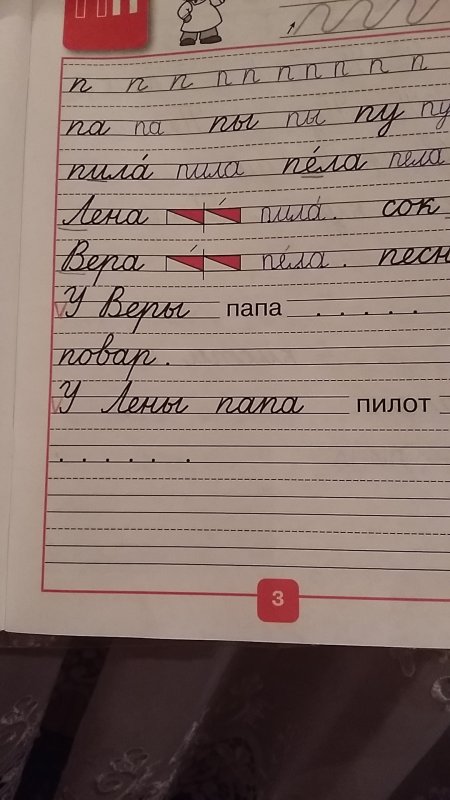 Пп
п п п п п п п п п п
па па пы пы пу пу
пила́ пила пе́ла пела
Лена пила́. сок
Вера пе́ла. песн
У Веры папа . . . . .
повар.
У Лены папа пилот
. . . . . .
3